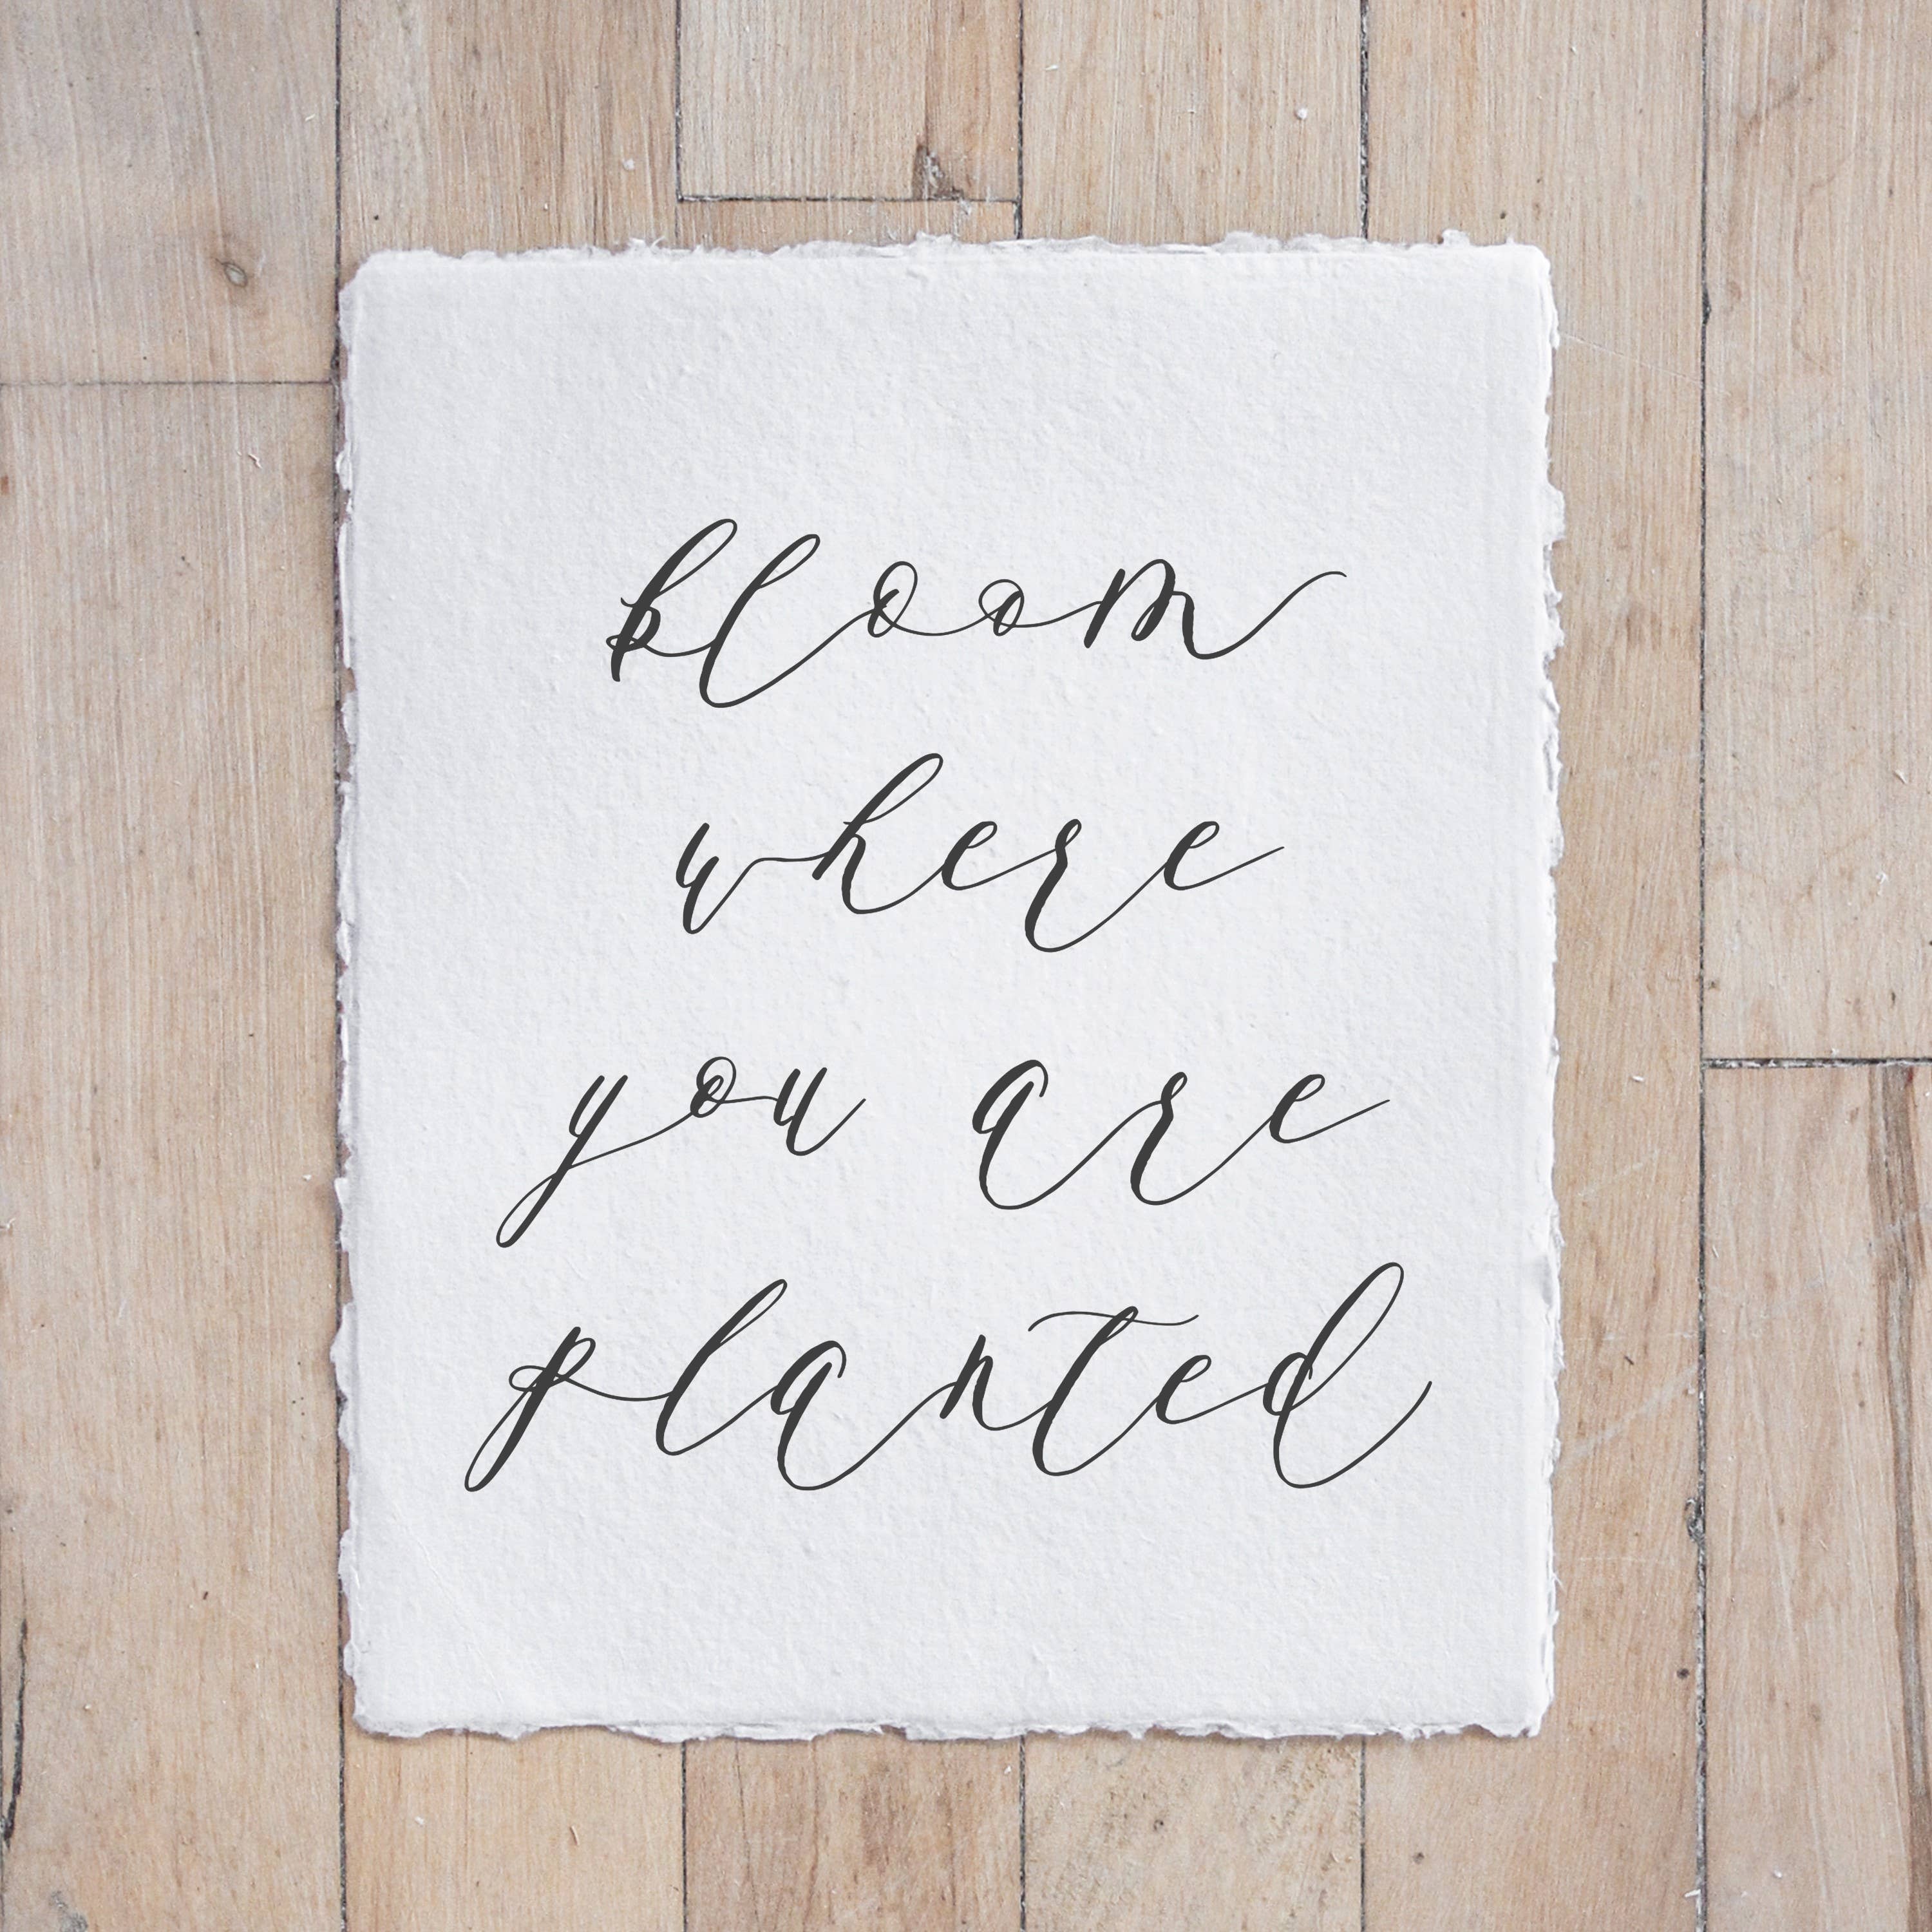 bloom
where
you are
planted